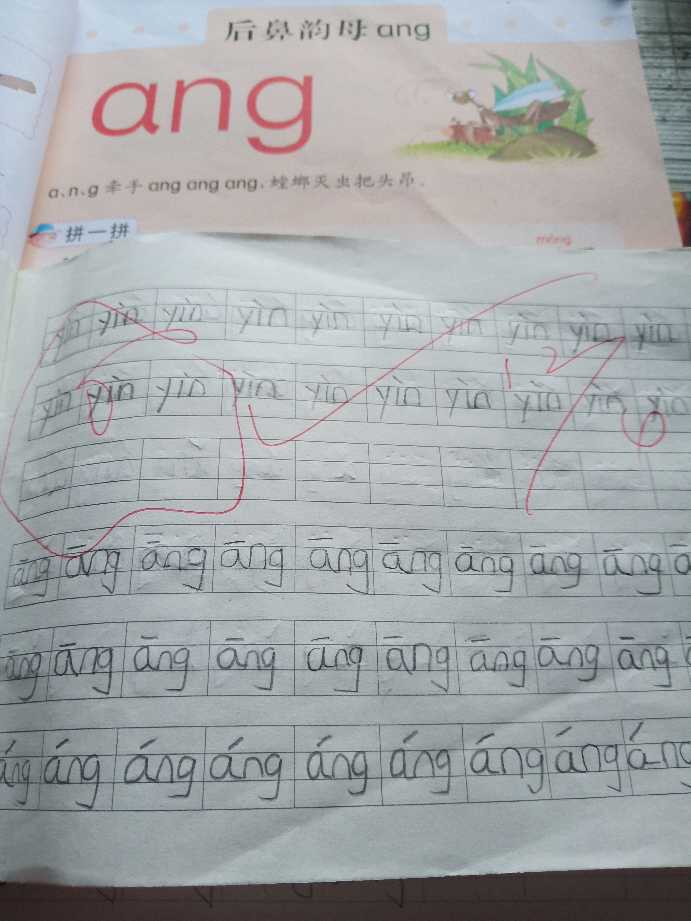 后鼻韵母ang
ang
a、n、g 牵手 ang ang ang，螳螂灭虫把头昂。
拼一拼
yìn yìn yìn yìn yìn yìn yìn yìn yìn yìn
yìn yìn yìn yìn yìn yìn yìn yìn yìn
āng āng āng āng āng āng āng āng āng
āng āng āng āng āng āng āng āng āng
áng áng áng áng áng áng áng áng áng